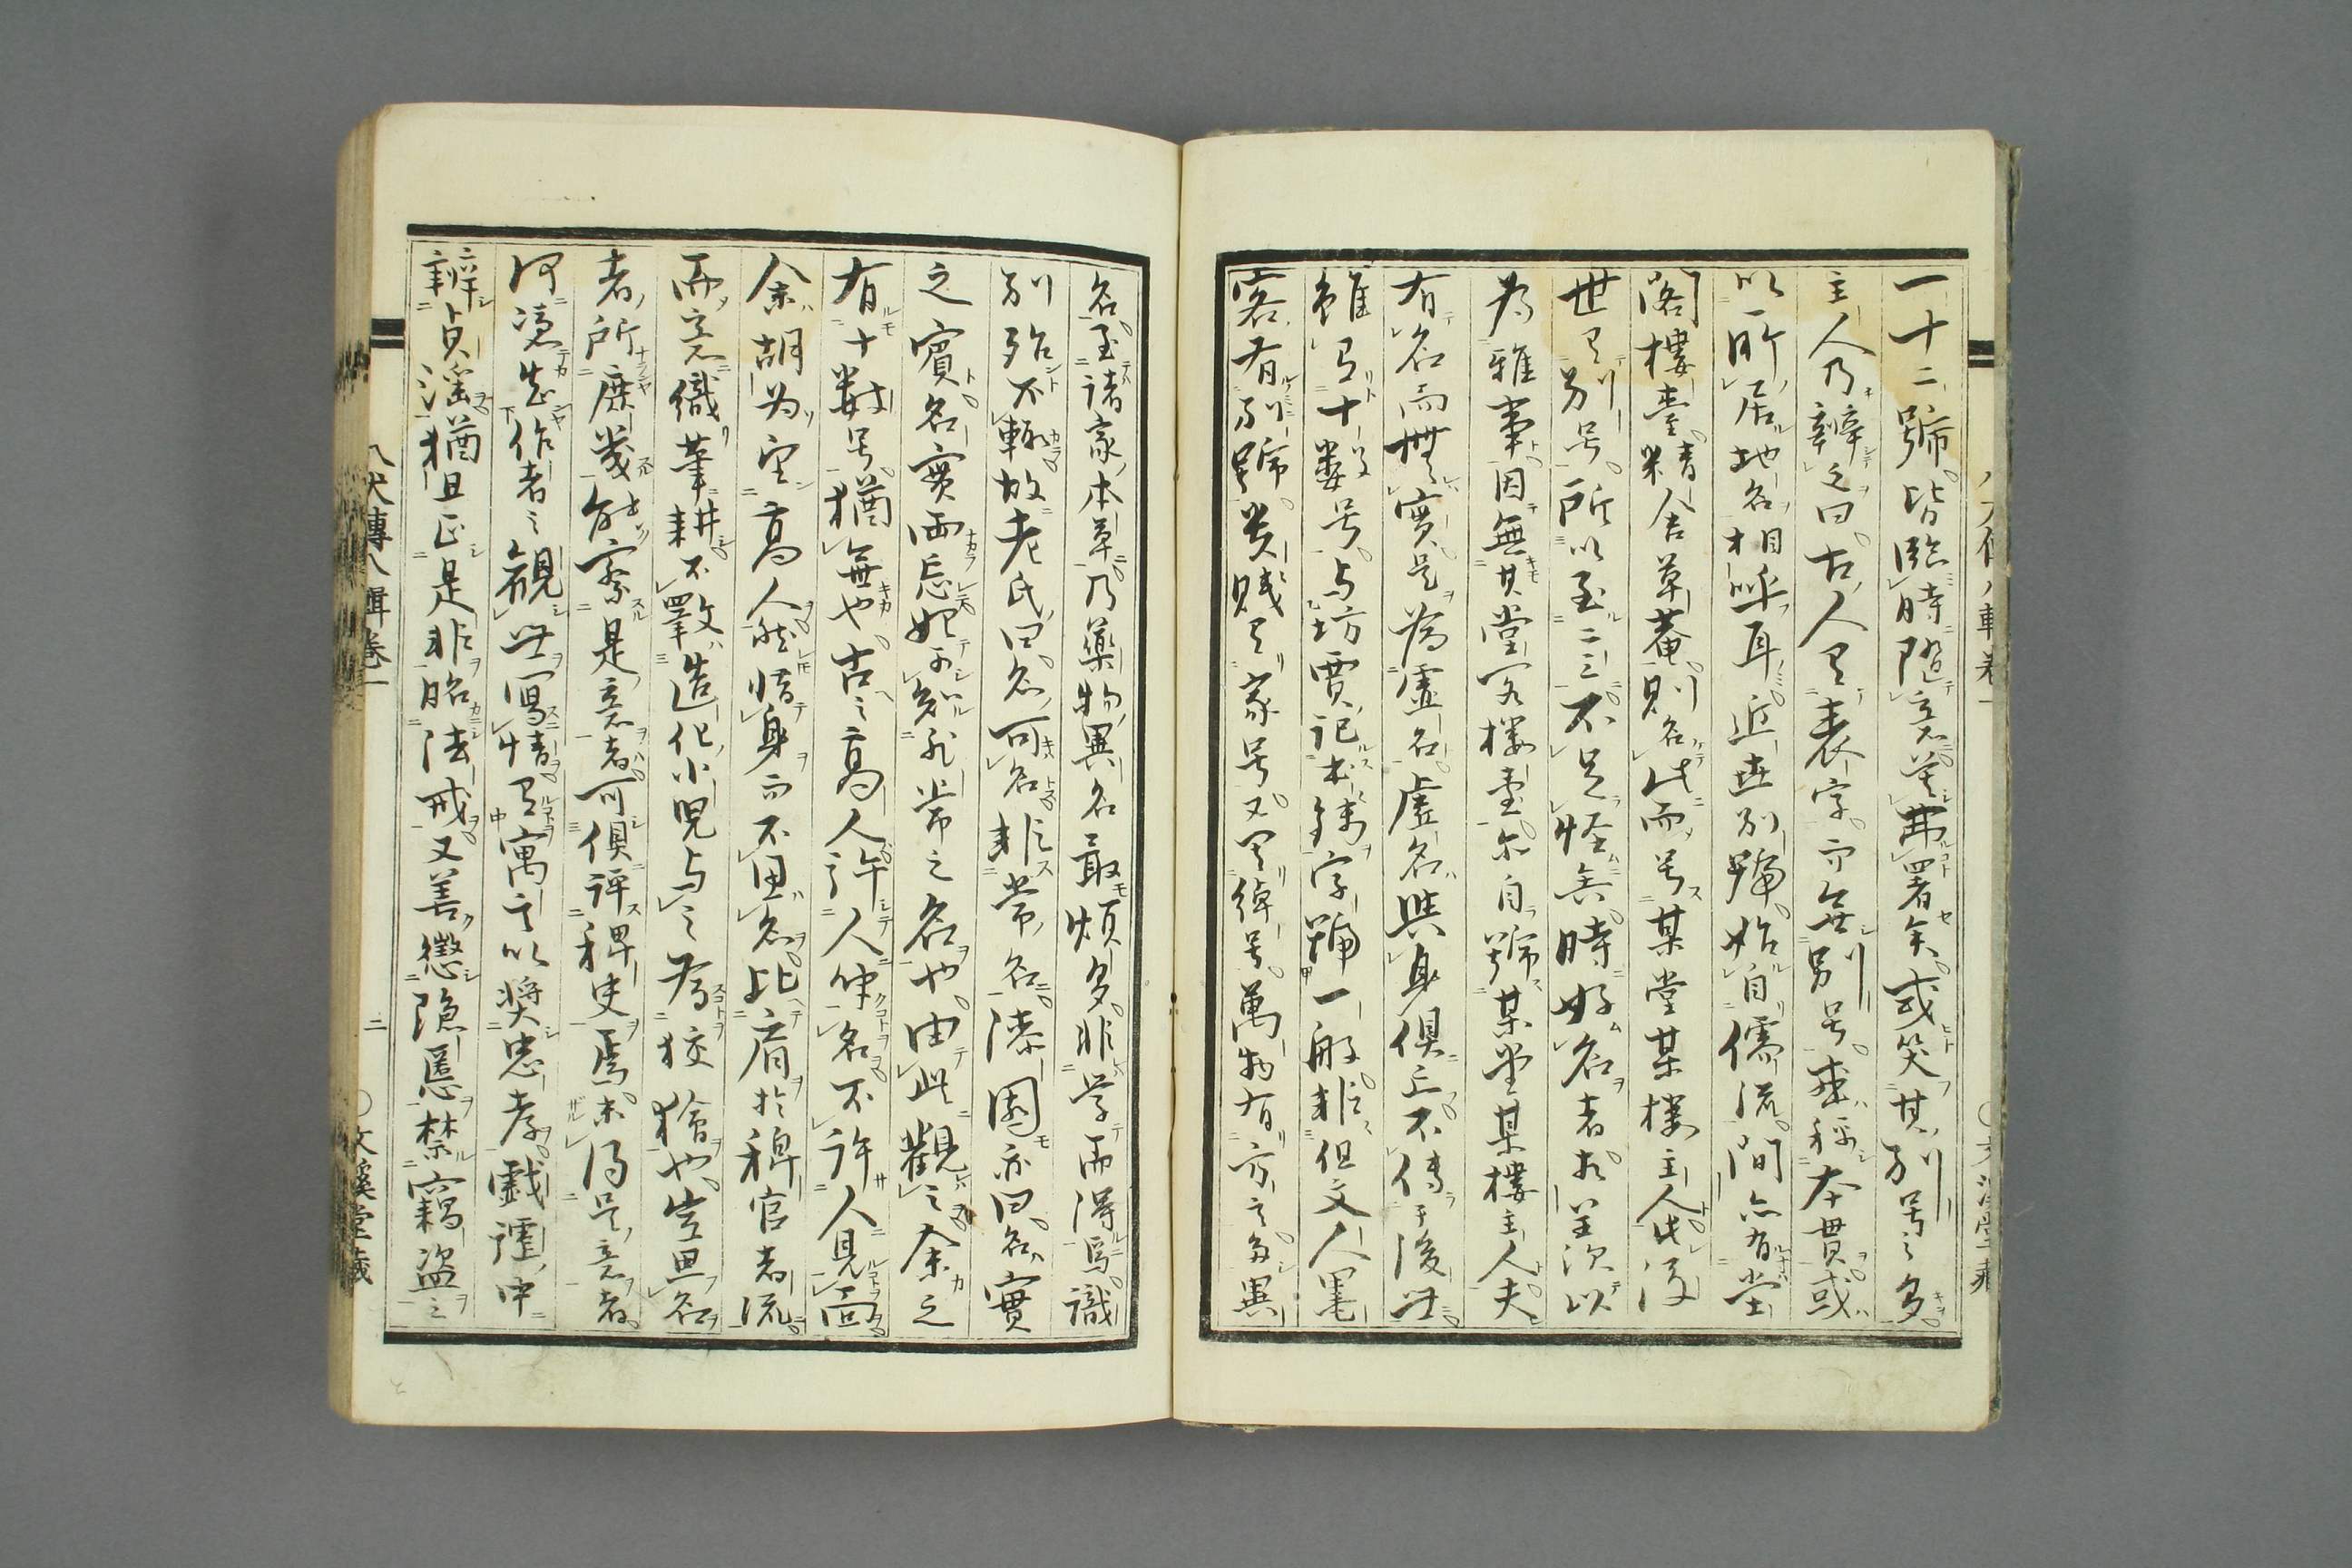 一十二號。皆臨時隨意所弗署矣。或笑其別号之多。
主人乃辯之曰。古人有表字。而無別号。或稱本貫。或
以所居地名相呼耳。近世別號。始自儒流。間亦有堂
閣樓臺。精舍草菴。則名此而号某堂某樓主人。此後
世有別号。所以至二三不足怪矣。時好名者。相並次以
為雅事。因無其堂冥樓臺。亦自號某堂某樓主人。夫
有名而無實。是為虛名。虛名與身俱亡。不傳于後世。
雖有十數号。与坊賈記本錢字號一般。非但文人墨
客有別號。貴賤有家号。又有綽号。萬物有方言多異
名。至諸家本草。乃藥物異名最煩多。非学而得焉。識
別殆不輙。故老氏曰。名可名。非常名。漆園亦曰。名實
之賓。名實兩忘。始可知非常之名也。由此觀之。余之
有十數号。猶無也。古之高人。許人呼名。不許人見面。
余胡為。安高人。然惜身而不思名。比肩於稗官者流。
而意織筆耕不敢輟。造化小兒与之為狡獪也。豈思名
者所庶幾。能索是意者。可俱評稗史焉。未得是意者。
何憑知作者之觀世寫情。有寓言以奬忠孝。戲謔中
辨貞淫。猶且正是非。昭法戒。又善懲隱慝。禁竊盜之
八犬傳八輯卷一
二
○文溪堂藏